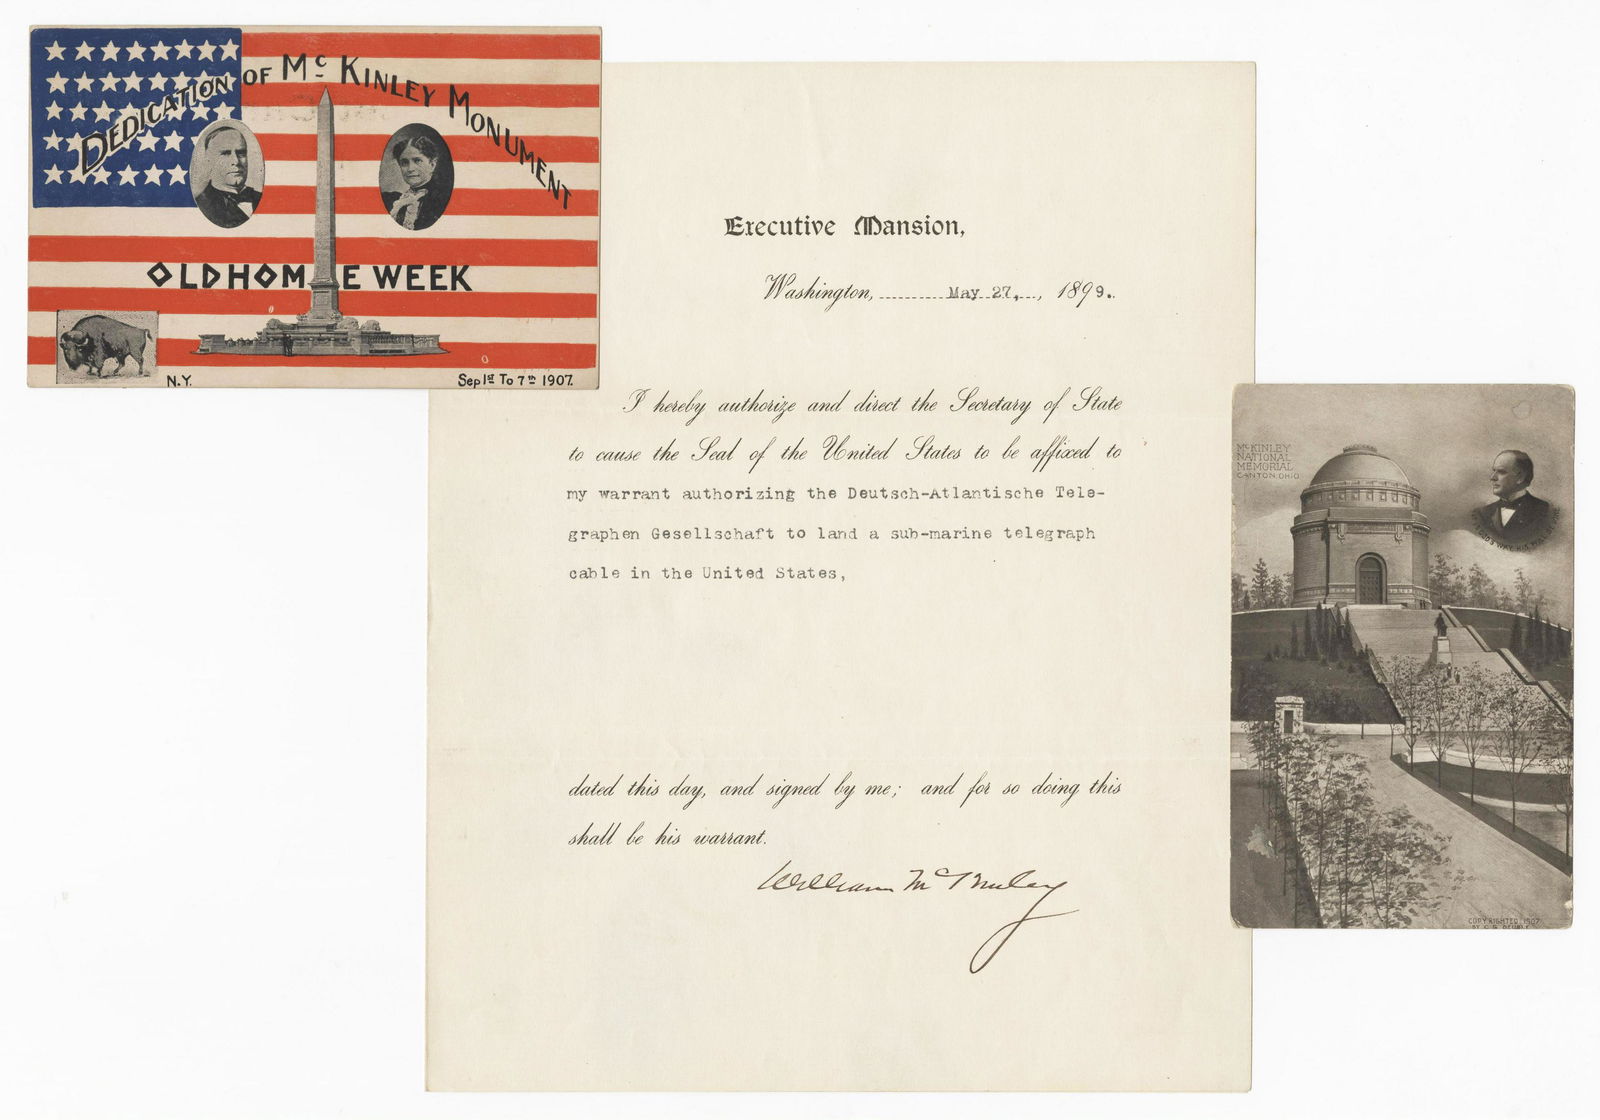 DEDICATION OF Mc KINLEY MONUMENT
OLD HOME WEEK
N.Y.
Sep 1st To 7th 1907.
Executive Mansion,
Washington, May 27, , 1899.
I hereby authorize and direct the Secretary of State
to cause the Seal of the United States to be affixed to
my warrant authorizing the Deutsch-Atlantische Tele-
graphen Gesellschaft to land a sub-marine telegraph
cable in the United States,
dated this day, and signed by me; and for so doing this
shall be his warrant.
William McKinley
McKINLEY
NATIONAL
MEMORIAL
CANTON, OHIO
COPYRIGHTED 1907
BY C. G. DEUBLE